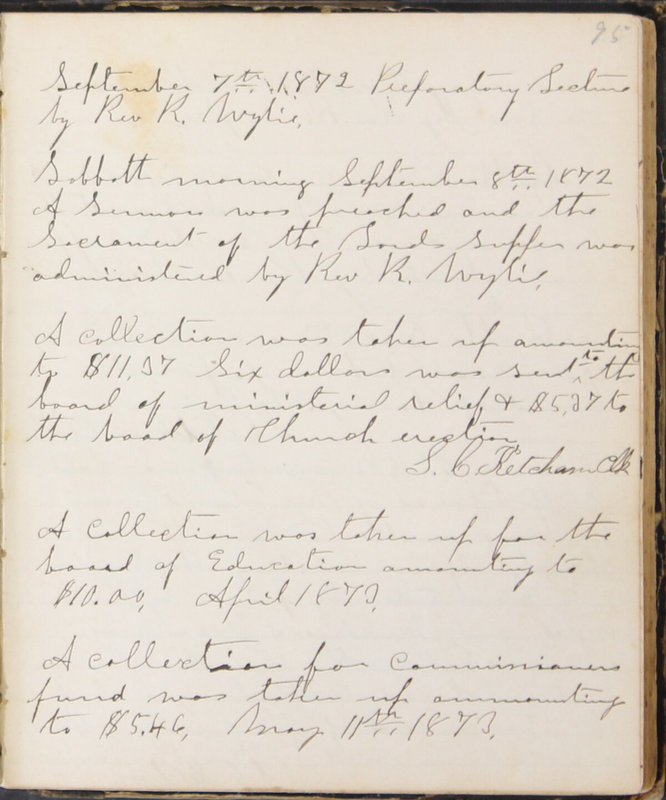 95
September 7th 1872 Preporatory Lecture
by Rev R. Wylie,
Sabbath morning September 8th 1872
A Sermon was preached and the
Sacrament of the Lords Supper was
administered by Rev R. Wylie,
A collection was taken up amounting
to $11,37 Six dollars was sent to the
board of ministerial relief & $5,37 to
the boad of Church erection,
S. C. Ketcham Clk
A collection was taken up for the
board of Education amounting to
$10.00, April 1873,
A collection for Commissioners
fund was taken up ammounting
to $5.46, May 11th 1873,